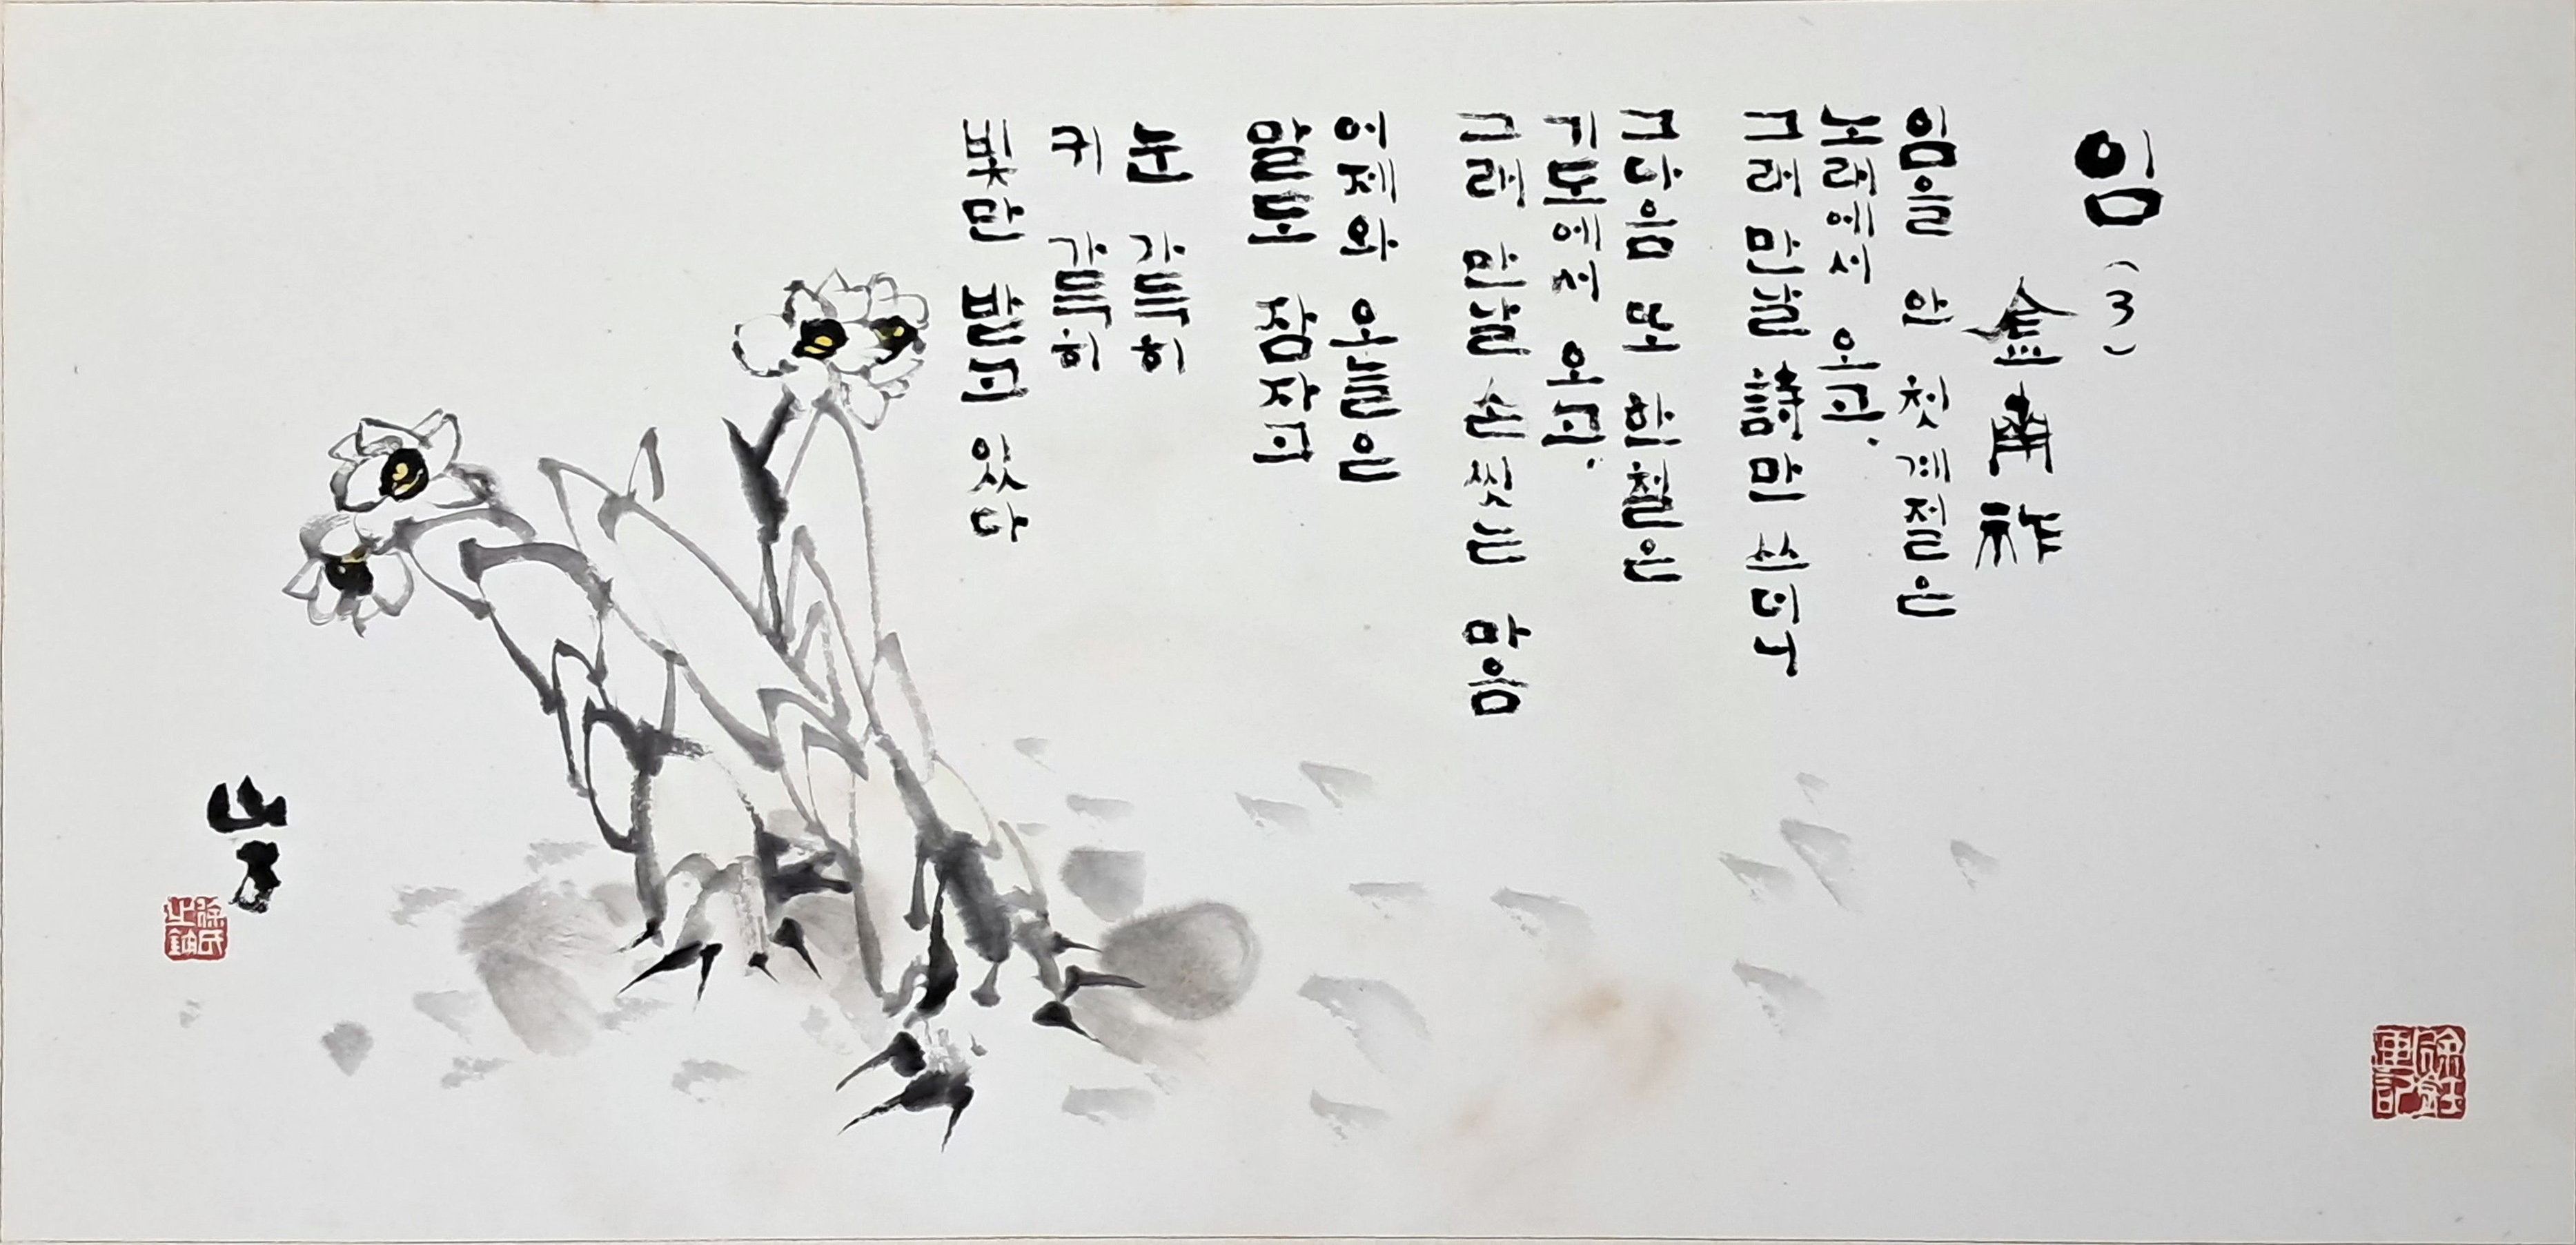 임 (3)
金南祚
임을 안 첫 계절은
노래에서 오고.
그래 만날 詩만 쓰더니
그 다음 또 한철은
기도에서 오고.
그래 만날 손 씻는 마음
어제와 오늘은
말도 잠자고
눈 가득히
귀 가득히
빛만 받고 있다